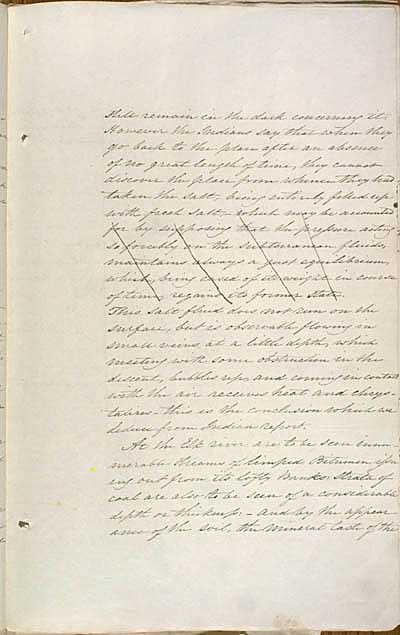 still remain in the dark concerning it.
However the Indians say that when they
go back to the place after an absence
of no great length of time, they cannot
discover the place from whence they had
taken the salt, being entirely filled up
with fresh salt, which may be accounted
for by supposing that the pressure acting
so forcibly on the subterranean fluids,
maintains always a just equilibrium,
which, being eased of its weight in course
of time, regains its former state.
This salt fluid does not run on the
surface, but is observable flowing in
small veins at a little depth, which
meeting with some obstruction in the
descent, bubbles up, and coming in contact
with the air receives heat and chrys-
talizes - this is the conclusion which we
deduce from Indian report.
At the Elk river are to be seen innu-
merable streams of limpid Bitumen issu-
ing out from its lofty Banks: Strata of
coal are also to be seen of a considerable
depth or thickness: - And by the appear-
ance of the soil, the mineral taste of the